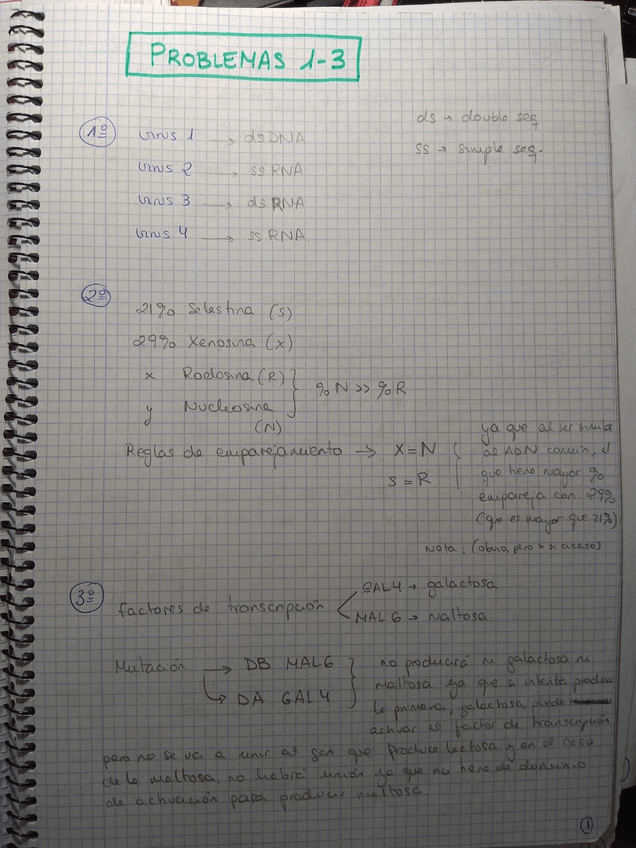 PROBLEMAS 1-3
ds → double seq
ss → simple seq.
1º virus 1 → dsDNA
virus 2 → ssRNA
virus 3 → dsRNA
virus 4 → ssRNA
2º
21% Selestina (S)
29% Xenosina (X)
x Rodosina (R)
y Nucleosina
(N)
%N >> %R
Reglas de emparejamiento → X=N
S=R
ya que al ser similar
al ADN común, el
que tiene mayor %
empareja con 29%
(que es mayor que 21%)
Nota: (obvio, pero x si acaso)
3º
factores de transcripción
GAL4 → galactosa
MAL6 → maltosa
Mutación → DB MAL6
→ DA GAL4
no producirá ni galactosa ni
maltosa ya que si intenta producir
la primera, galactosa, puede
activar el factor de transcripción
pero no se va a unir al gen que produce lactosa y en el caso
de la maltosa, no habrá unión ya que no tiene de dominio
de activación para producir maltosa
1